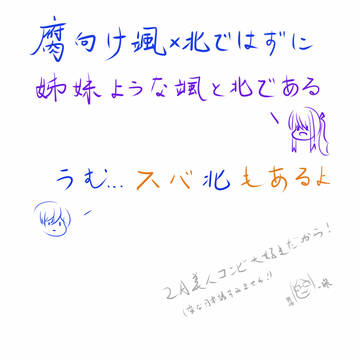 腐向け颯×北ではずに
姉妹ような颯と北である
うむ... スバ北もあるよ
2A美人コンビ大好きだから!
(変な日本語すみません!)